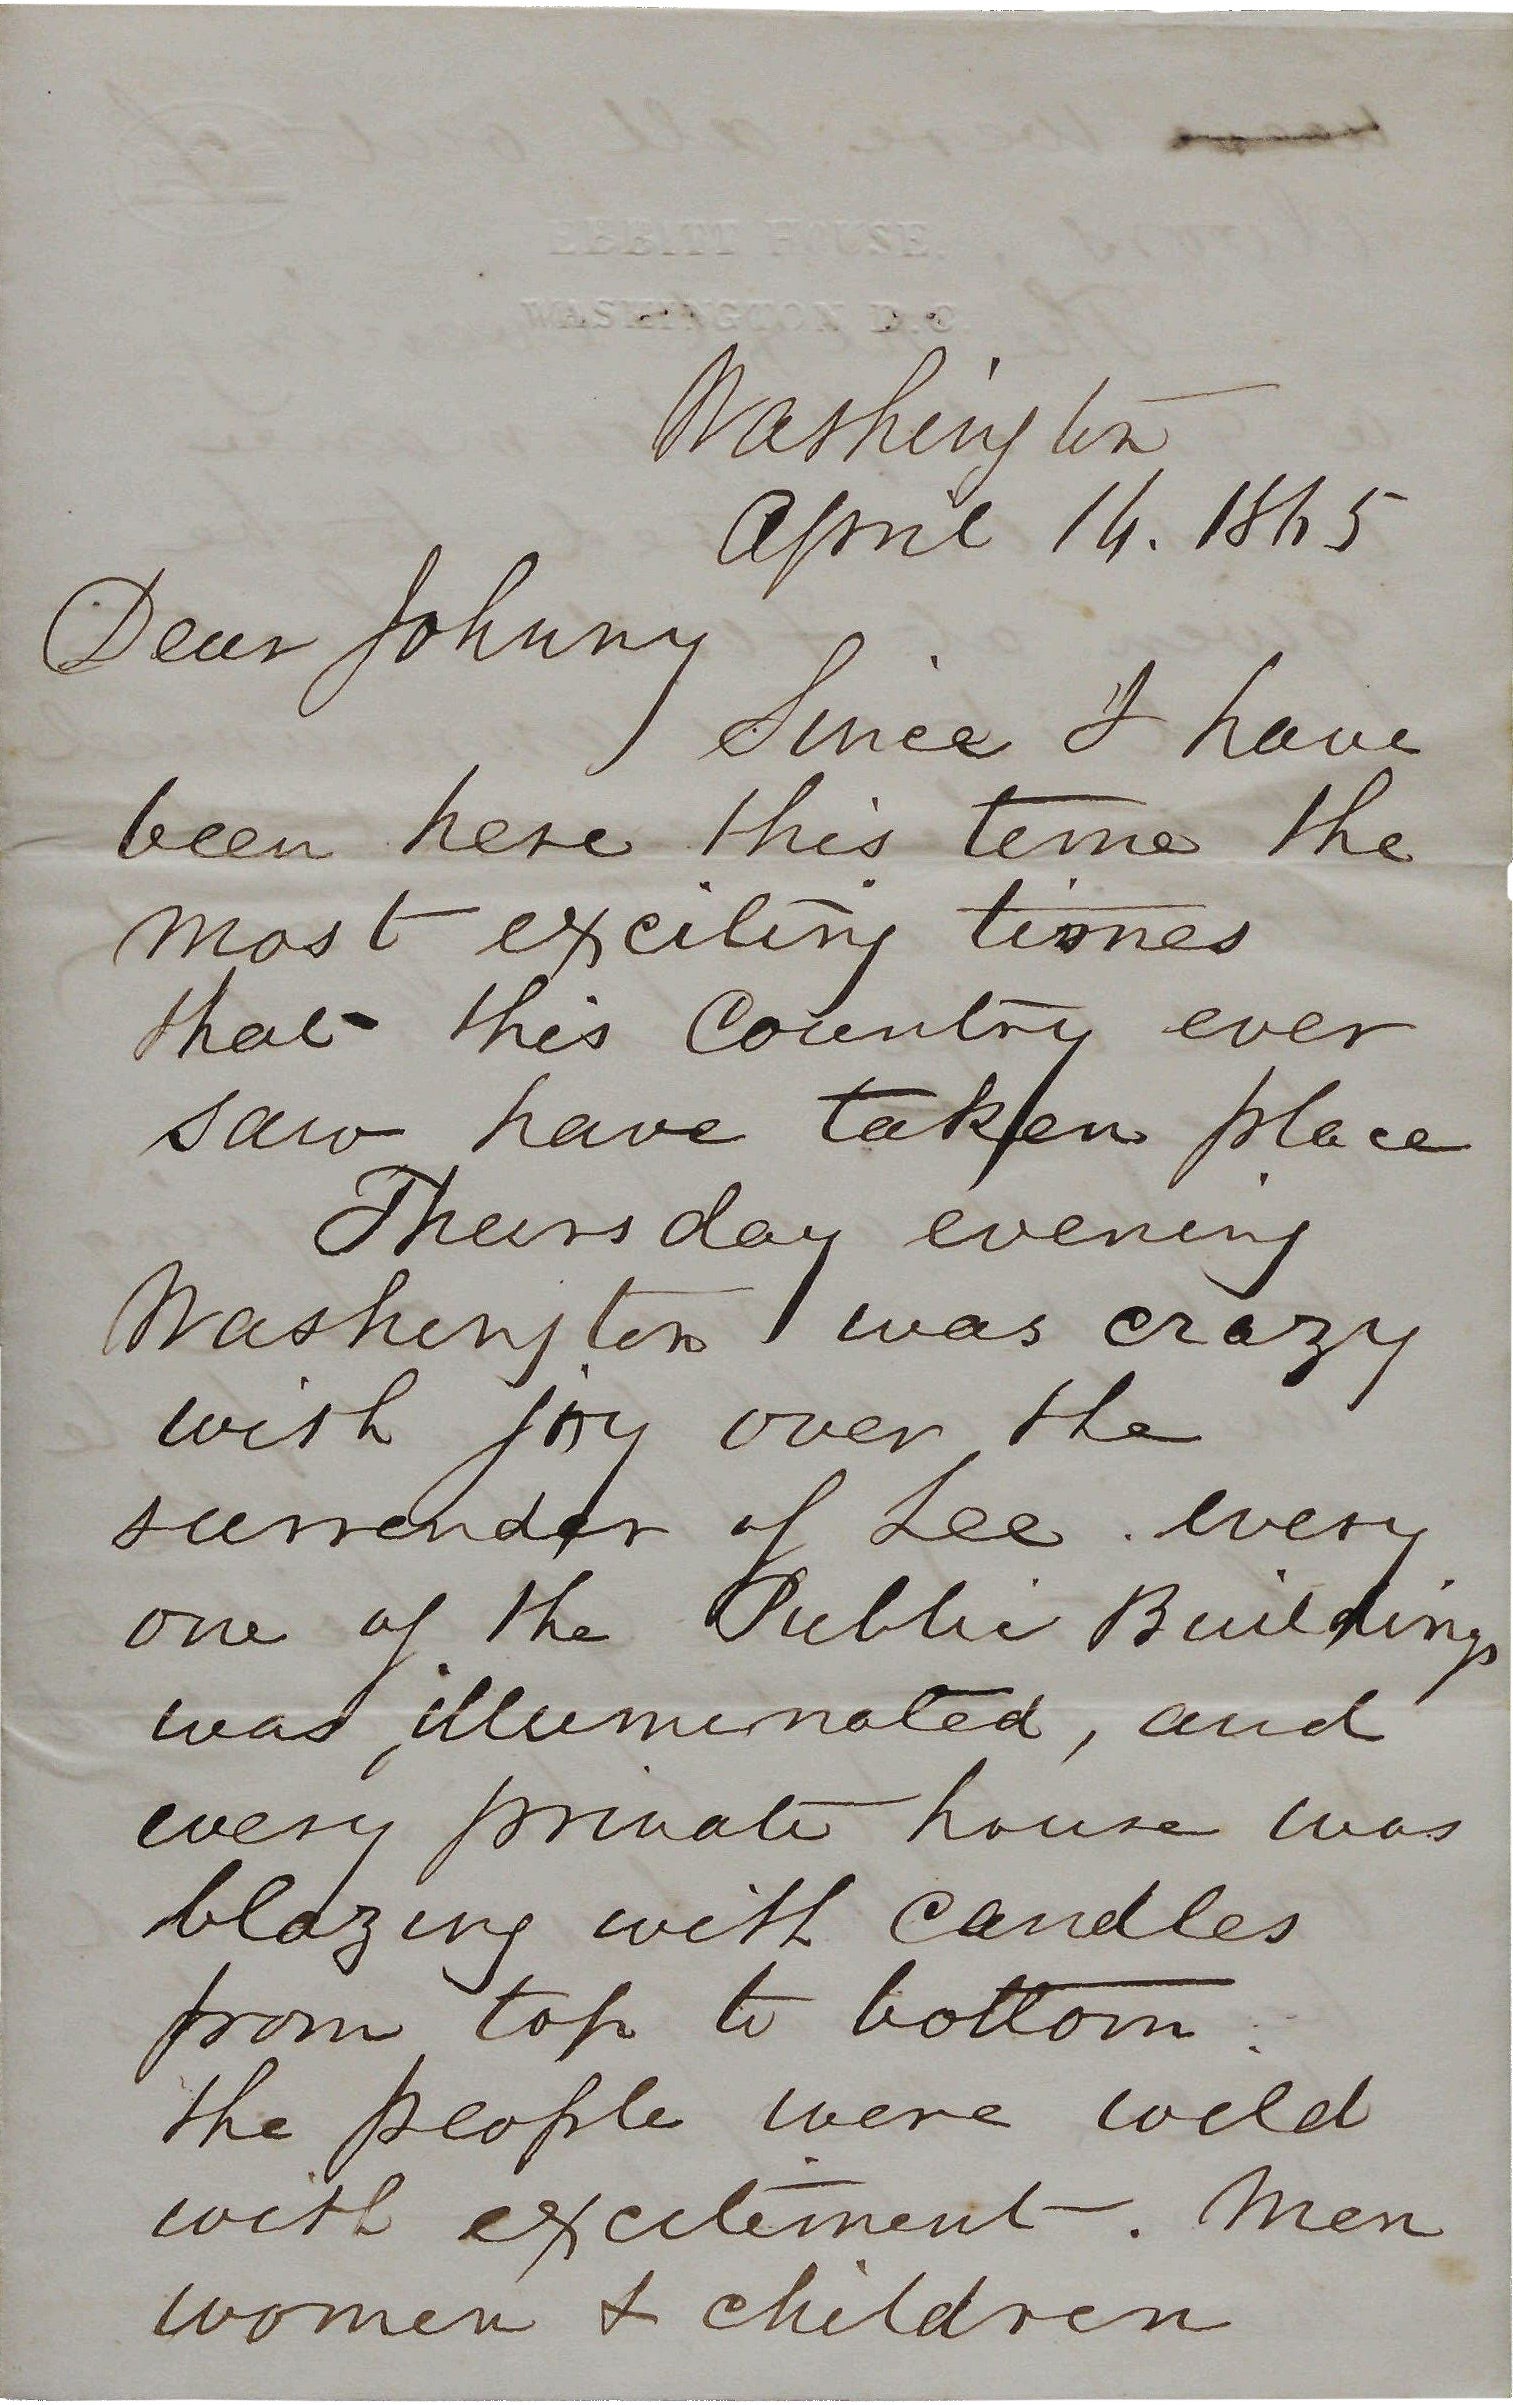 EBBITT HOUSE.
WASHINGTON D.C.
Washington
April 16. 1865
Dear Johnny
Since I have
been here this time the
most exciting times
that this Country ever
saw have taken place
Thursday evening
Washington was crazy
with joy over the
surrender of Lee. every
one of the Public Buildings
was illuminated, and
every private house was
blazing with candles
from top to bottom.
the people were wild
with excitement. Men
women & children